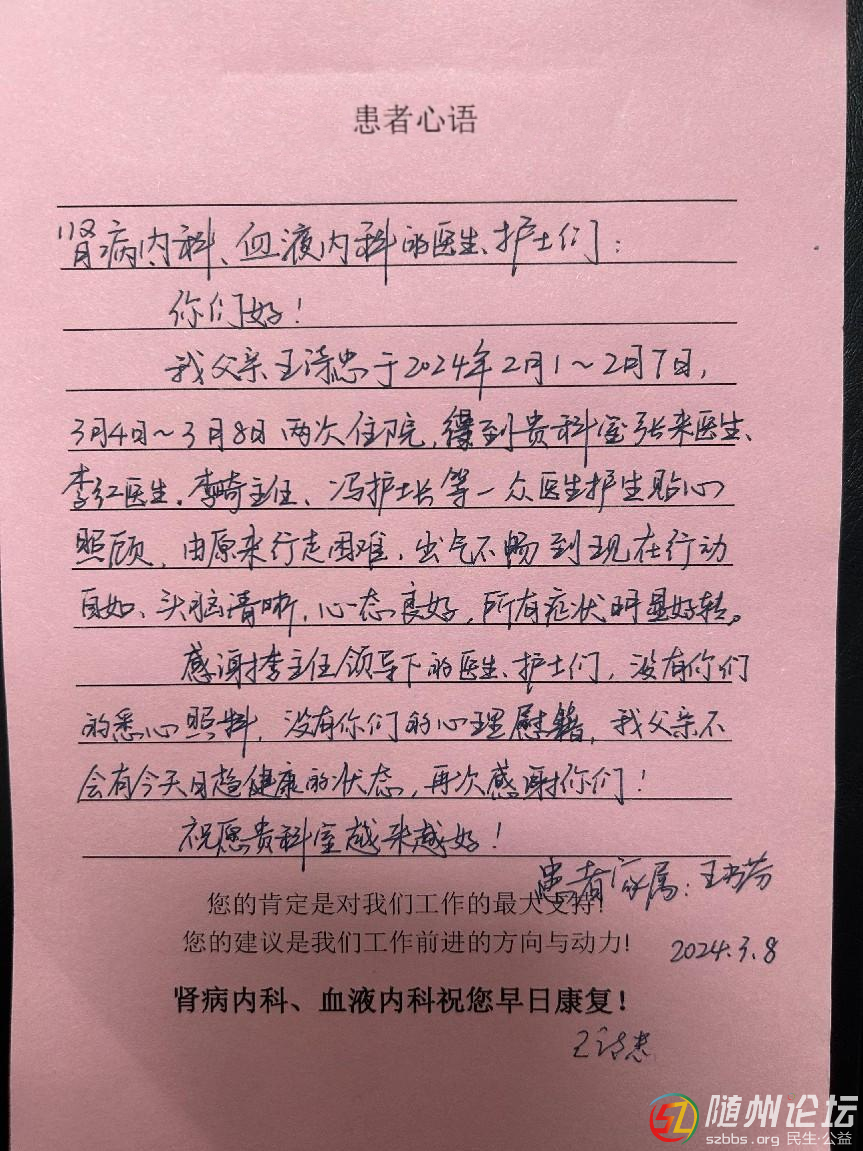 患者心语
肾病内科、血液内科的医生、护士们:
你们好!
我父亲王涛忠于2024年2月1~2月7日,
3月4日~3月8日两次住院,得到贵科室张来医生、
李红医生、李崎主任、冯护士长等一众医生护生贴心
照顾,由原来行走困难、出气不畅到现在行动
自如、头脑清晰,心态良好,所有症状明显好转。
感谢李主任领导下的医生、护士们,没有你们
的悉心照料,没有你们的心理慰籍,我父亲不
会有今天日趋健康的状态,再次感谢你们!
祝愿贵科室越来越好!
患者家属:王芬
您的肯定是对我们工作的最大支持!
您的建议是我们工作前进的方向与动力!
2024.3.8
肾病内科、血液内科祝您早日康复!
王忠
随州论坛
szbbs.org 民生·公益